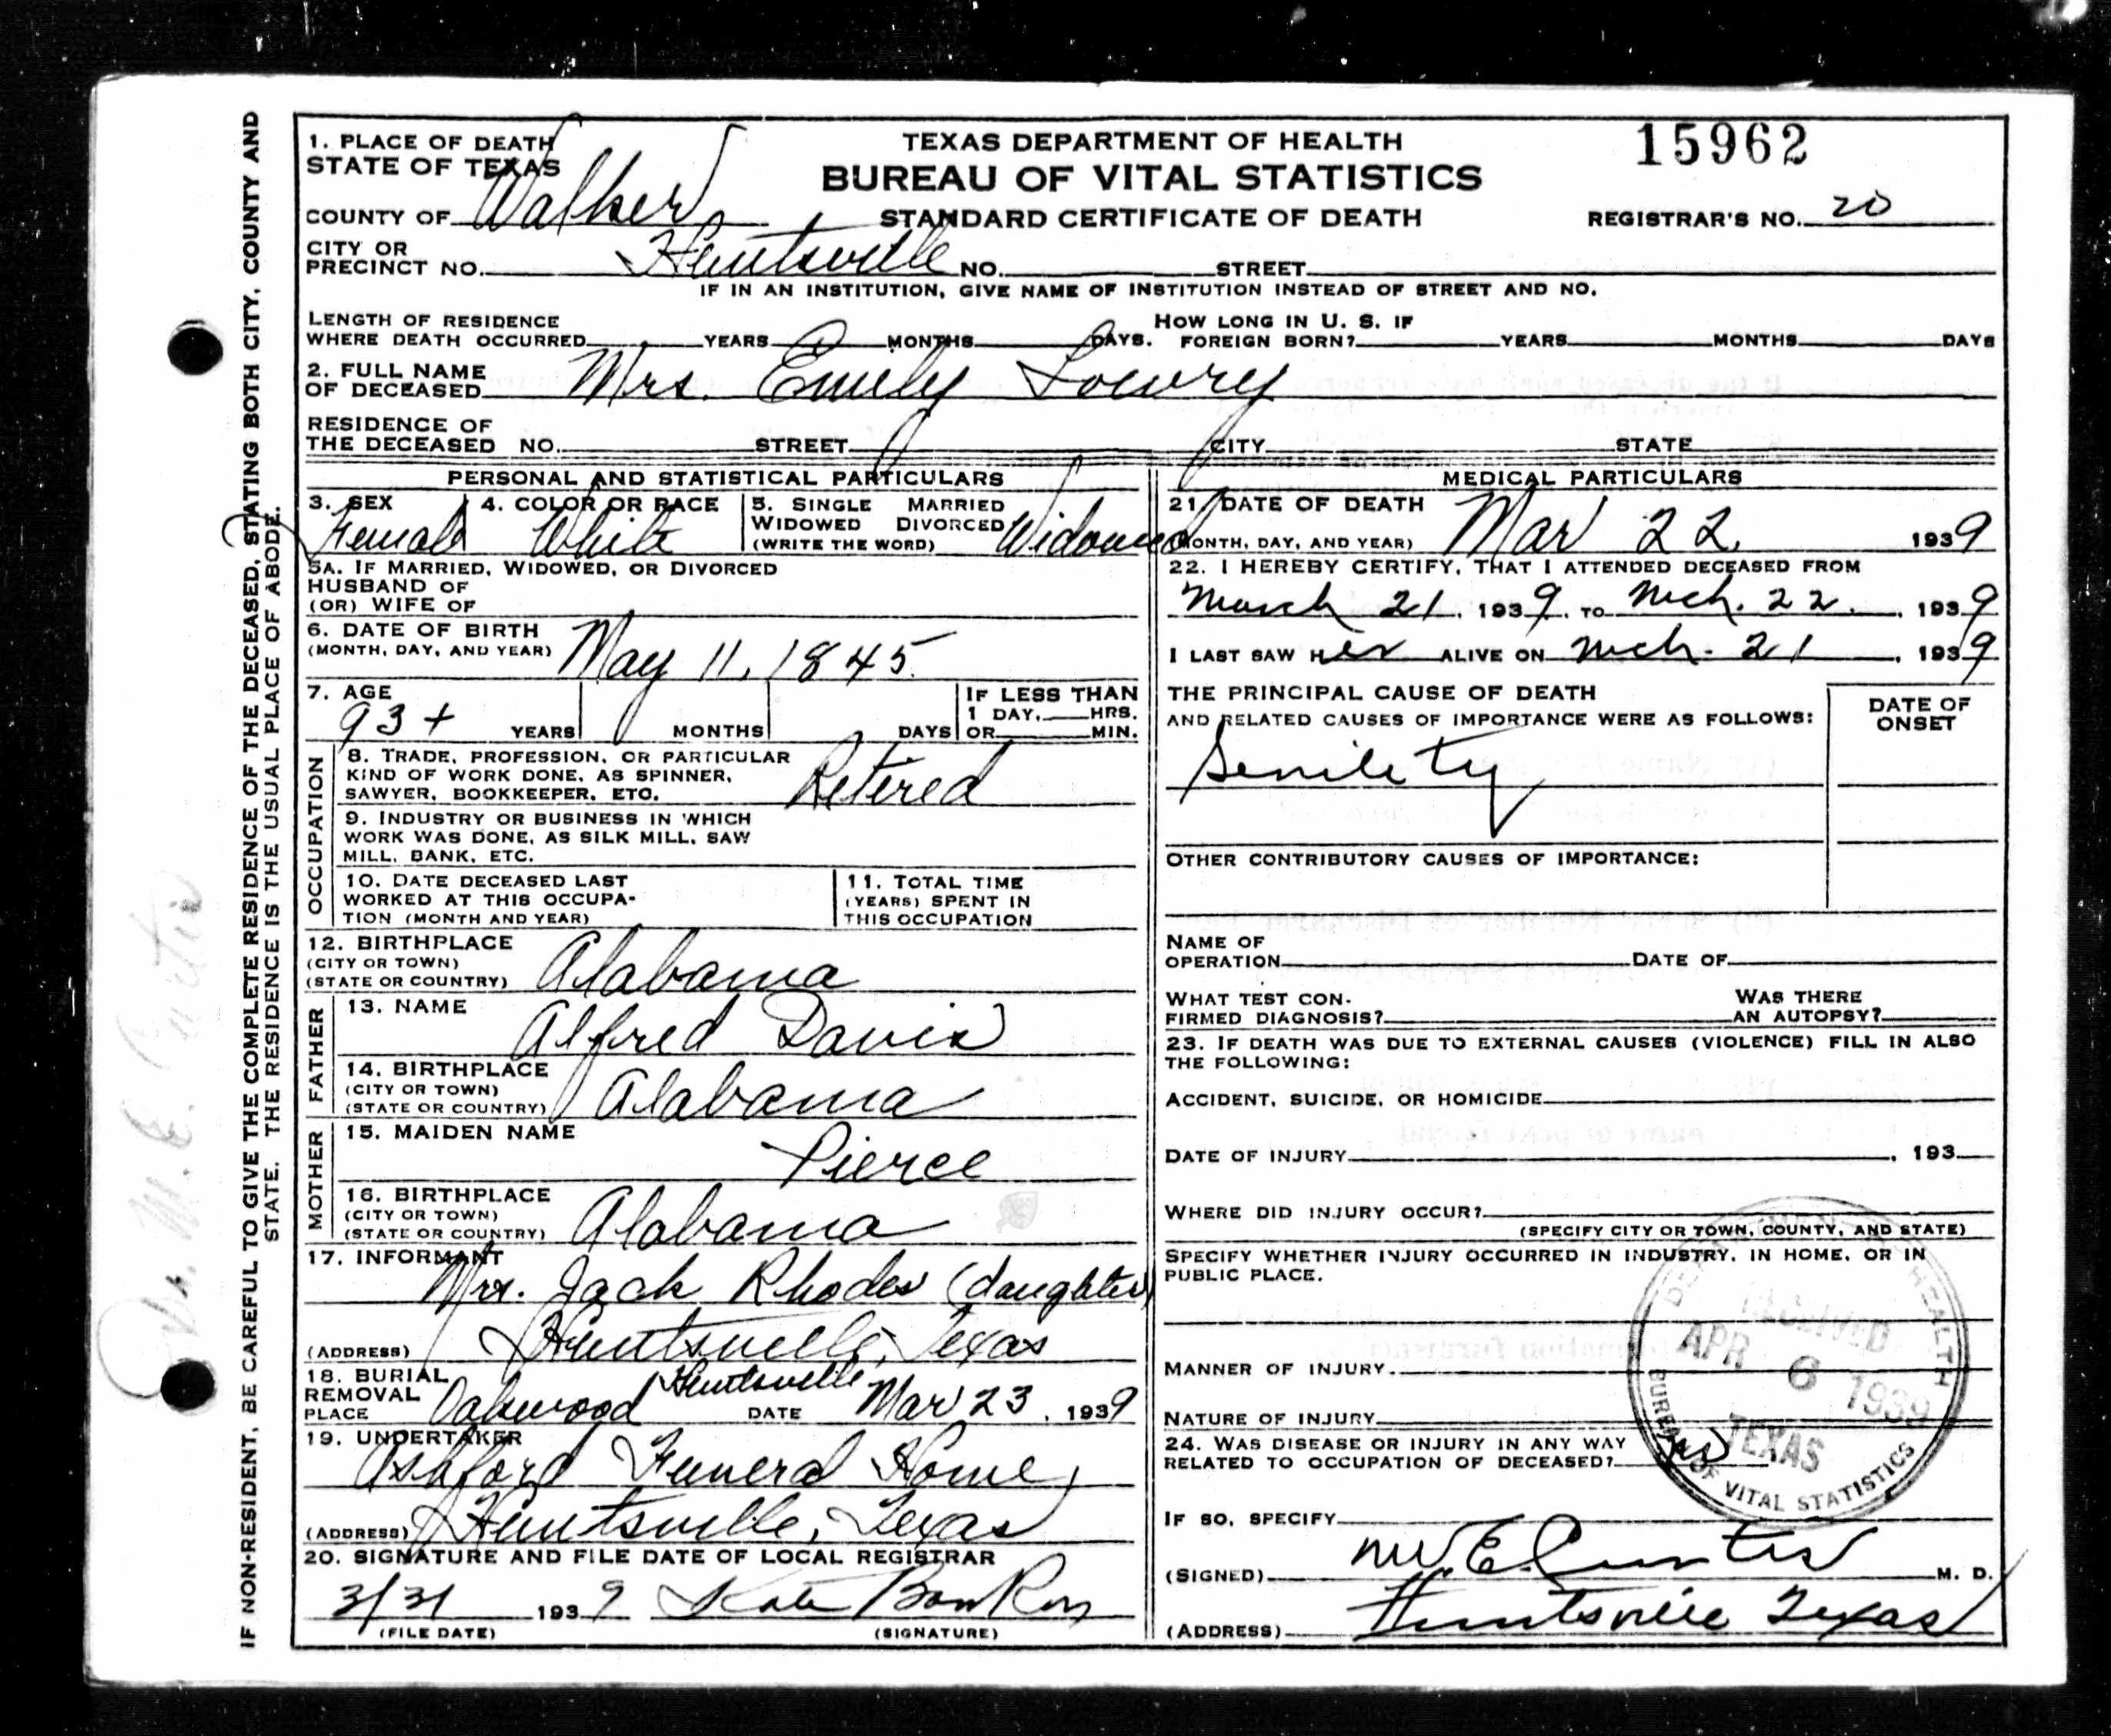 1. PLACE OF DEATH
STATE OF TEXAS
COUNTY OF Walker
CITY OR
PRECINCT NO. Huntsville NO. STREET
TEXAS DEPARTMENT OF HEALTH
BUREAU OF VITAL STATISTICS
STANDARD CERTIFICATE OF DEATH
15962
REGISTRAR'S NO. 20
IF IN AN INSTITUTION, GIVE NAME OF INSTITUTION INSTEAD OF STREET AND NO.
LENGTH OF RESIDENCE
WHERE DEATH OCCURRED YEARS MONTHS DAYS.
HOW LONG IN U. S. IF
FOREIGN BORN? YEARS MONTHS DAYS
2. FULL NAME
OF DECEASED Mrs. Emily Lowry
RESIDENCE OF
THE DECEASED NO. STREET CITY STATE
PERSONAL AND STATISTICAL PARTICULARS
3. SEX
Female
4. COLOR OR RACE
White
5. SINGLE MARRIED
WIDOWED DIVORCED
(WRITE THE WORD) Widowed
5A. IF MARRIED, WIDOWED, OR DIVORCED
HUSBAND OF
(OR) WIFE OF
6. DATE OF BIRTH
(MONTH, DAY, AND YEAR) May 11, 1845.
7. AGE
93+ YEARS MONTHS DAYS
IF LESS THAN
1 DAY, HRS.
OR MIN.
OCCUPATION
8. TRADE, PROFESSION, OR PARTICULAR
KIND OF WORK DONE, AS SPINNER,
SAWYER, BOOKKEEPER, ETC. Retired
9. INDUSTRY OR BUSINESS IN WHICH
WORK WAS DONE, AS SILK MILL, SAW
MILL, BANK, ETC.
10. DATE DECEASED LAST
WORKED AT THIS OCCUPA-
TION (MONTH AND YEAR)
11. TOTAL TIME
(YEARS) SPENT IN
THIS OCCUPATION
12. BIRTHPLACE
(CITY OR TOWN)
(STATE OR COUNTRY) Alabama
FATHER
13. NAME
Alfred Davis
14. BIRTHPLACE
(CITY OR TOWN)
(STATE OR COUNTRY) Alabama
MOTHER
15. MAIDEN NAME
Pierce
16. BIRTHPLACE
(CITY OR TOWN)
(STATE OR COUNTRY) Alabama
17. INFORMANT
Mrs. Jack Rhodes (daughter)
(ADDRESS) Huntsville, Texas
18. BURIAL
REMOVAL
PLACE Oakwood Huntsville DATE Mar 23, 1939
19. UNDERTAKER
Ashford Funeral Home,
(ADDRESS) Huntsville, Texas
20. SIGNATURE AND FILE DATE OF LOCAL REGISTRAR
3/31 1939
(FILE DATE) (SIGNATURE)
MEDICAL PARTICULARS
21. DATE OF DEATH
(MONTH, DAY, AND YEAR) Mar 22, 1939
22. I HEREBY CERTIFY, THAT I ATTENDED DECEASED FROM
March 21, 1939, TO Mch. 22., 1939
I LAST SAW Her ALIVE ON Mch. 21, 1939
THE PRINCIPAL CAUSE OF DEATH
AND RELATED CAUSES OF IMPORTANCE WERE AS FOLLOWS:
DATE OF
ONSET
Senility
OTHER CONTRIBUTORY CAUSES OF IMPORTANCE:
NAME OF
OPERATION DATE OF
WHAT TEST CON-
FIRMED DIAGNOSIS?
WAS THERE
AN AUTOPSY?
23. IF DEATH WAS DUE TO EXTERNAL CAUSES (VIOLENCE) FILL IN ALSO
THE FOLLOWING:
ACCIDENT, SUICIDE, OR HOMICIDE
DATE OF INJURY , 193
WHERE DID INJURY OCCUR?
(SPECIFY CITY OR TOWN, COUNTY, AND STATE)
SPECIFY WHETHER INJURY OCCURRED IN INDUSTRY, IN HOME, OR IN
PUBLIC PLACE.
MANNER OF INJURY
NATURE OF INJURY
24. WAS DISEASE OR INJURY IN ANY WAY
RELATED TO OCCUPATION OF DECEASED? no
IF SO, SPECIFY
(SIGNED) M. E. Curtis M. D.
(ADDRESS) Huntsville Texas
RECEIVED
APR 6 1939
TEXAS
BUREAU OF VITAL STATISTICS
IF NON-RESIDENT, BE CAREFUL TO GIVE THE COMPLETE RESIDENCE OF THE DECEASED, STATING BOTH CITY, COUNTY AND
STATE. THE RESIDENCE IS THE USUAL PLACE OF ABODE.
Dr. M. E. Curtis